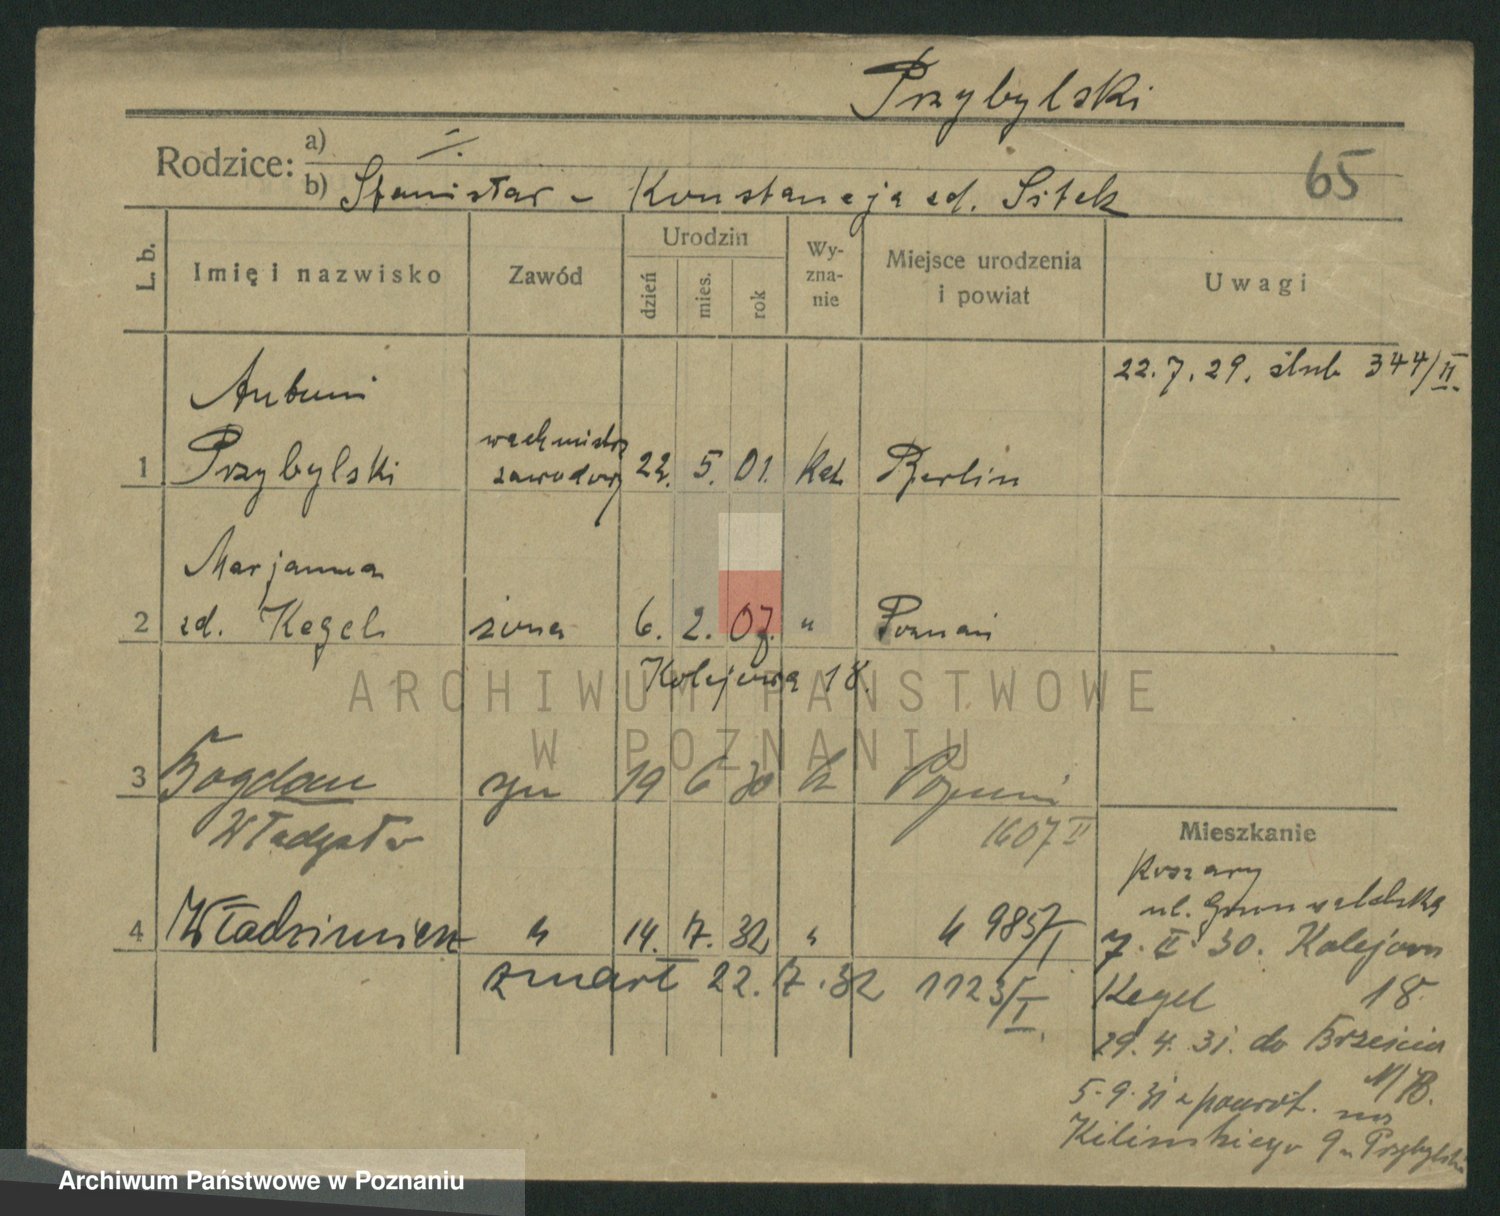 Przybylski
Rodzice: a) -/.
b) Stanisław - Konstancja zd. Sitek
65
L. b. Imię i nazwisko Zawód Urodzin dzień mies. rok Wy-zna-nie Miejsce urodzenia i powiat Uwagi
22.7.29. ślub 344/II.
Antoni
1 Przybylski wachmistrz zawodowy 22. 5. 01. kat. Berlin
Marjanna
2 zd. Kegel żona 6. 2. 07. " Poznań
Kolejowa 18.
ARCHIWUM PAŃSTWOWE
W POZNANIU
3 Bogdan syn 19 6 30 k Poznań
Władysław 1607 II
4 Włodzimierz " 14. 7. 32 " " 985/I
zmarł 22. 7. 32 1123/I.
Mieszkanie
Koszary
ul. Grunwaldzka
7. II. 30. Kolejowa
Kegel 18.
29. 4. 31. do Brześcia
N/B.
5.9.31 z powrot. na
Kilińskiego 9 u Przybylski
Archiwum Państwowe w Poznaniu